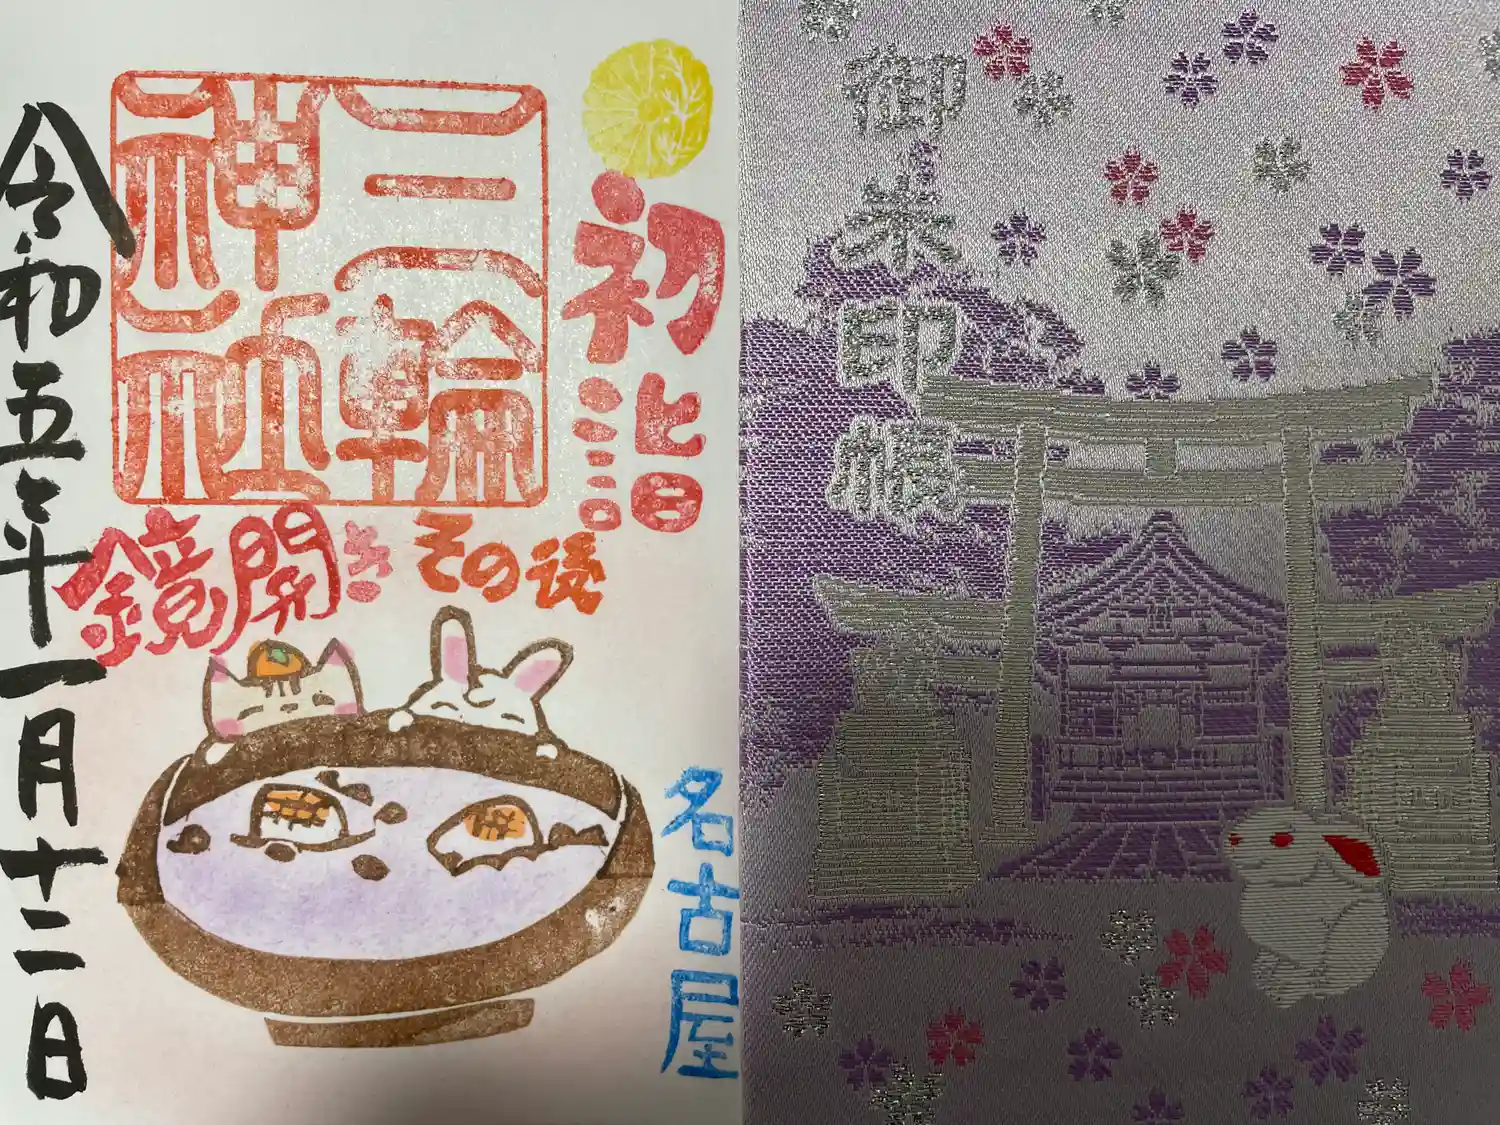 初詣
三輪
神社
鏡開き
その後
名古屋
令和五年一月十二日
御朱印帳